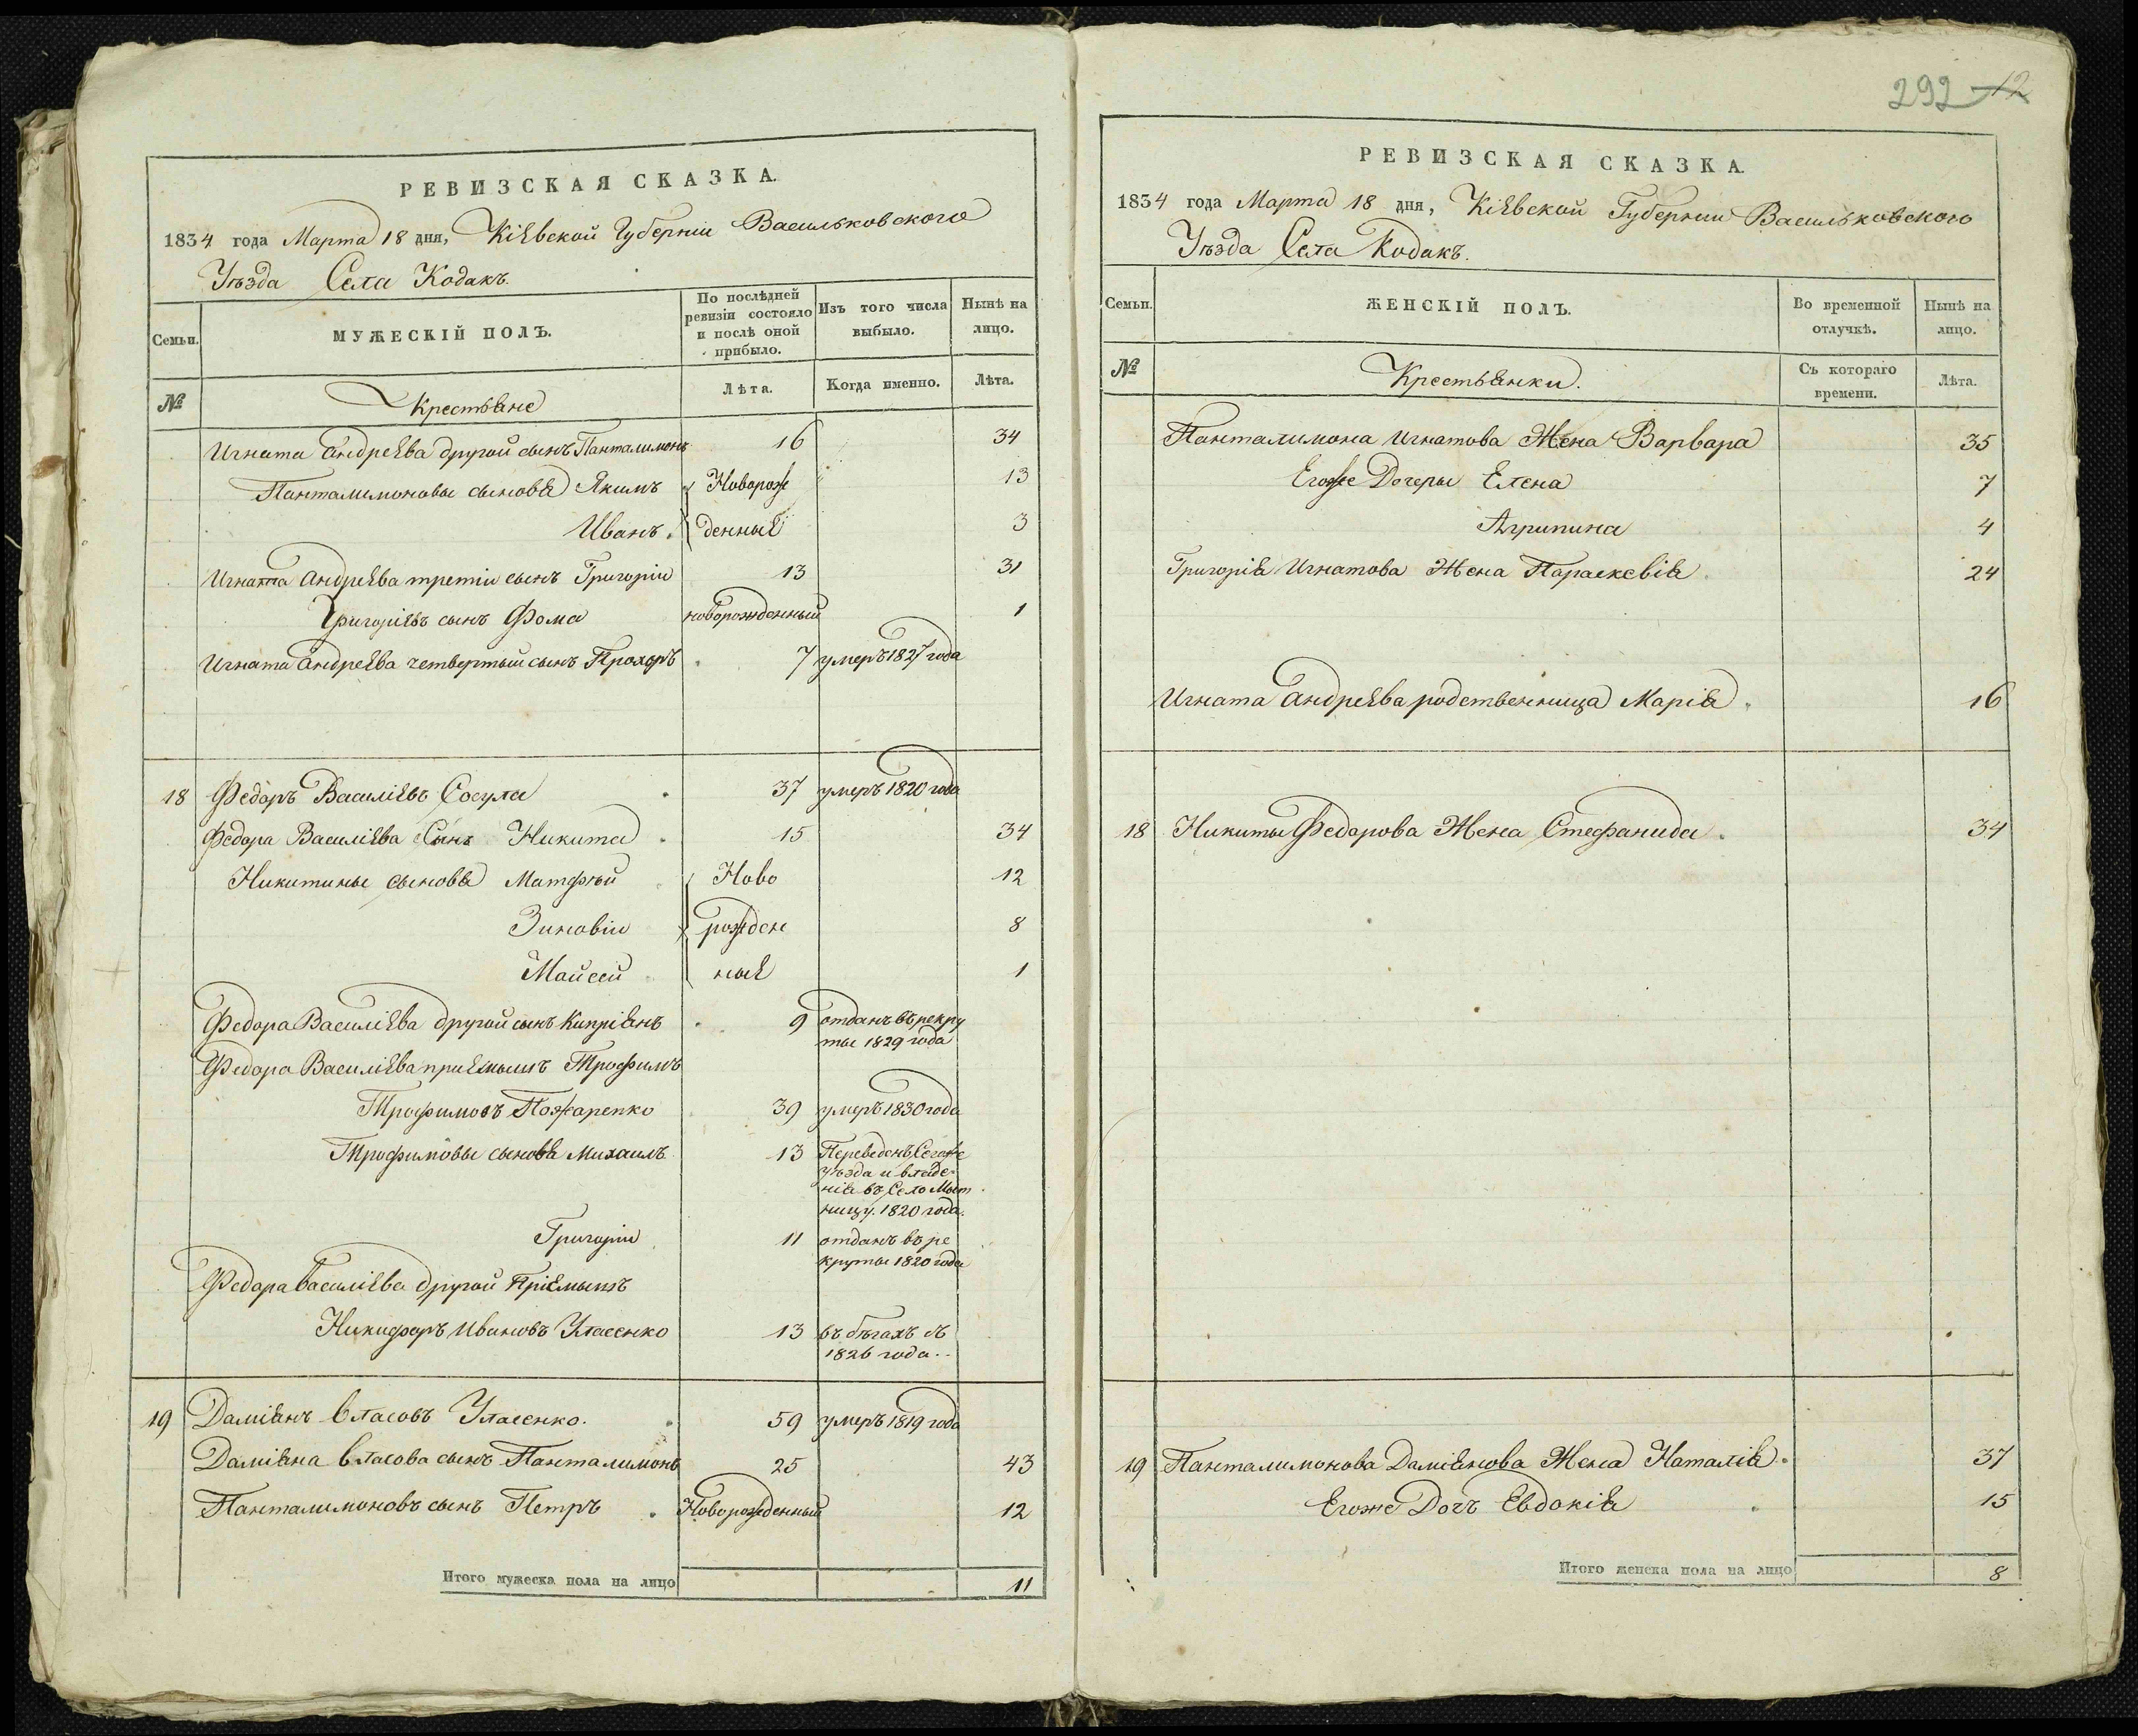 РЕВИЗСКАЯ СКАЗКА.
1834 года Марта 18 дня, Кіевской Губерніи Васильковского
Уѣзда Села Кодакъ.
Семьи.
МУЖЕСКІЙ ПОЛЪ.
По послѣдней
ревизіи состояло
и послѣ оной
прибыло.
Изъ того числа
выбыло.
Нынѣ на
лицо.
№
Крестьяне
Лѣта.
Когда именно.
Лѣта.
Игната Андреева другой сынъ Панталимонъ 16 34
Панталимоновы сыновя Якимъ Новорож 13
Иванъ. денные 3
Игната Андреева третіи сынъ Григоріи 13 31
Григоріевъ сынъ Фома новорожденный 1
Игната Андреева четвертый сынъ Прохоръ 7 умеръ 1827 года
18 Федоръ Василіевъ Сосула 37 умеръ 1820 года
Федора Василіева Сынъ Никита 15 34
Никитины сыновя Матфѣй Ново 12
Зиновіи рожден 8
Майсей ные 1
Федора Василіева другой сынъ Кипріянъ 9 отданъ въ рекру
ты 1829 года
Федора Василіева приемышъ Трофимъ
Трофимовъ Пожаренко 39 умеръ 1830 года
Трофимовы сыновя Михаилъ 13 Переведенъ Сегоже
уѣзда и владе-
нія въ Село Мыт
ницу. 1820 года.
Григоріи 11 отданъ въ ре
круты 1820 года
Федора Василіева другой Пріемышъ
Никифоръ Ивановъ Уласенко 13 въ бѣгахъ съ
1826 года.
19 Даміянъ Власовъ Уласенко. 59 умеръ 1819 года
Даміяна Власова сынъ Панталимонъ 25 43
Панталимоновъ сынъ Петръ Новорожденный 12
Итого мужеска пола на лицо 11
292 12
РЕВИЗСКАЯ СКАЗКА.
1834 года Марта 18 дня, Кіевской Губерніи Васильковского
Уѣзда Села Кодакъ.
Семьи.
ЖЕНСКІЙ ПОЛЪ.
Во временной
отлучкѣ.
Нынѣ на
лицо.
№
Крестьянки.
Съ котораго
времени.
Лѣта.
Панталимона Игнатова Жена Варвара 35
Егоже Дочеры Елена 7
Агрипина 4
Григорія Игнатова Жена Параскевія 24
Игната Андреева родственница Марія 16
18 Никиты Федорова Жена Стефанида. 34
19 Панталимонова Даміянова Жена Наталія. 37
Егоже Дочъ Евдокія 15
Итого женска пола на лицо 8